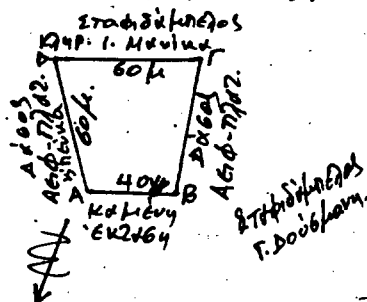 Σταφιδάμπελος
Κληρ. Ι. Μανίκα
Δ
Γ
60μ
Δάσος
Αειφ-Πλατ.
κηπευκά
60μ.
Δάσος
Αειφ-Πλατ.
Α
40μ
Β
καμένη
έκταση
Σταφιδάμπελος
Γ. Δούσμανη.